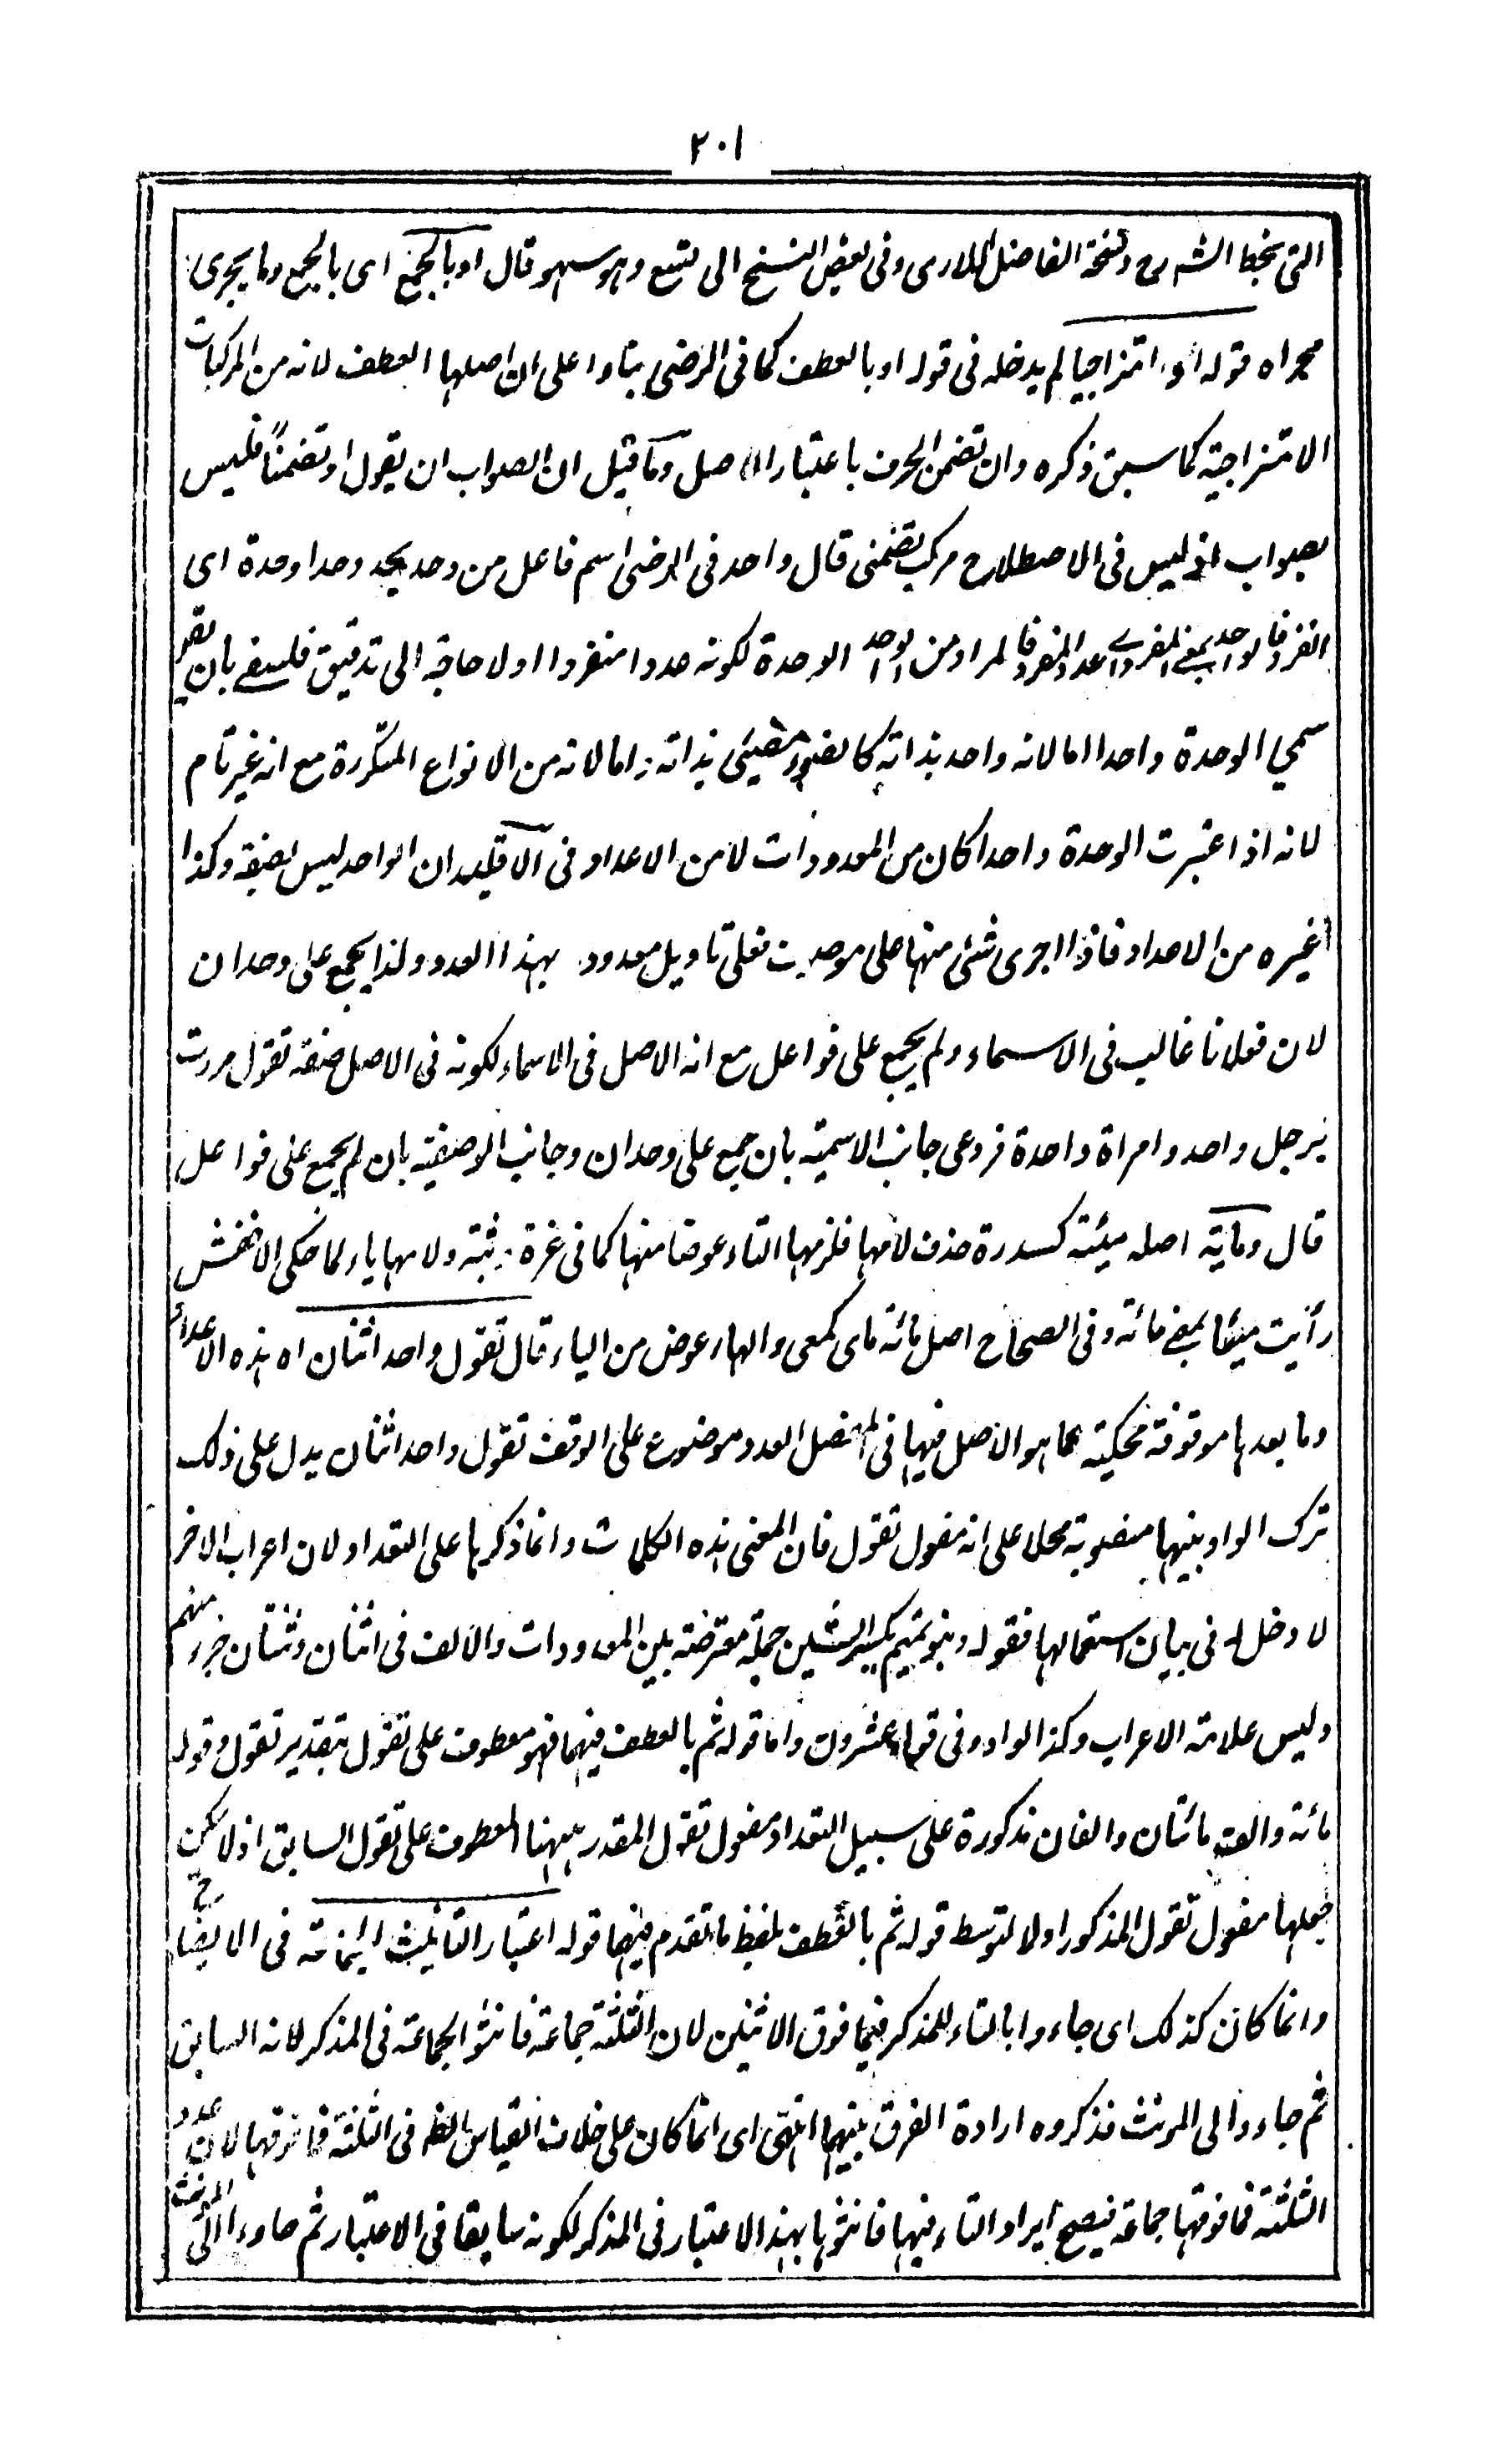 ٢٠١
التى بخط الشارح ونسخة الفاضل اللارى وفى بعض النسخ الى تسع وهو سهو قال او بالجمع اى بالجمع وما يجرى
مجراه قوله او امتزاجيا لم يدخله فى قوله او بالعطف كما فى الرضى بناء على ان اصلها العطف لانه من المركبات
الامتزاجية كما سبق ذكره وان تضمن الحرف باعتبار الاصل وما قيل ان الصواب ان يقول او تضمنًا فليس
بصواب اذ ليس فى الاصطلاح مركب تضمنى قال واحد فى الرضى اسم فاعل من وحد يحد وحدا وحدة اى
انفرد فالواحد بمعنى المنفرد اى العدد المنفرد فالمراد من الواحد الوحدة لكونه عددا منفردا اولا حاجة الى تدقيق فلسفے بان يقر
سمي الوحدة واحدا اما لانه واحد بذاته كالضوء مضيئى بذاته واما لانه من الانواع المتكررة مع انه غير تام
لانه اذ اعتبرت الوحدة واحدا كان من المعدودات لا من الاعداد وفى الاقليد ان الواحد ليس بصفة وكذا
غيره من الاعداد فاذا اجرى شئى منها على موصوف فعلى تاويل معدود بهذا العدد ولذا يجمع على وحدان
لان فعلانا غالب فى الاسماء ولم يجمع على فواعل مع انه الاصل فى الاسماء لكونه فى الاصل صفة تقول مررت
برجل واحد وامراة واحدة فروعى جانب الاسمية بان جمع على وحدان وجانب الوصفية بان لم يجمع على فواعل
قال ومائة اصله مئية كسدرة حذف لامها فلزمها التاء عوضا منها كما فى عزة وثبة ولامها ياء لما حكى الاخفش
رأيت مئيا بمعنے مائة وفى الصحاح اصل مائة مأى كمعى والهاء عوض من الياء قال تقول واحد اثنان اه هذه الاعداد
وما بعدها موقوفة محكية عما هو الاصل فيها فى المفصل العدد موضوع على الوقف تقول واحد اثنان يدل على ذلك
ترك الواو بينها منصوبة محلا على انه مفعول تقول فان المعنى هذه الكلمات وانما ذكرها على التعداد لان اعراب الاخر
لا دخل له فى بيان استعمالها فقوله وبنو تميم يكسر الشين جملة معترضة بين المعدودات والالف فى اثنان وثنتان جزء منهم
وليس علامة الاعراب وكذا الواو وفى قوله عشرون واما قوله ثم بالعطف فيهما فهو معطوف على تقول بتقدير تقول وقوله
مائة والف مائتان والفان مذكورة على سبيل التعداد مفعول تقول المقدر ههنا المعطوف على تقول السابق اذ لا يمكن
جعلها مفعول تقول المذكور اولا لتوسط قوله ثم بالعطف بلفظ ما تقدم فيها قوله اعتبار التأنيث الجماعة فى الايضاح
وانما كان كذلك اى جاءوا بالتاء للمذكر فيما فوق الاثنين لان الثلثة جماعة فانثوا الجماعة فى المذكر لانه السابق
ثم جاءوا الى المونث فذكروه ارادة الفرق بينهما انتهى اى انما كان على خلاف القياس الظ فى الثلثة فما فوقها لان عدد
الثلثة فما فوقها جماعة فيصح ايراد التاء فيها فانثوها بهذا الاعتبار فى المذكر لكونه سابقا فى الاعتبار ثم جاءوا الى المونث